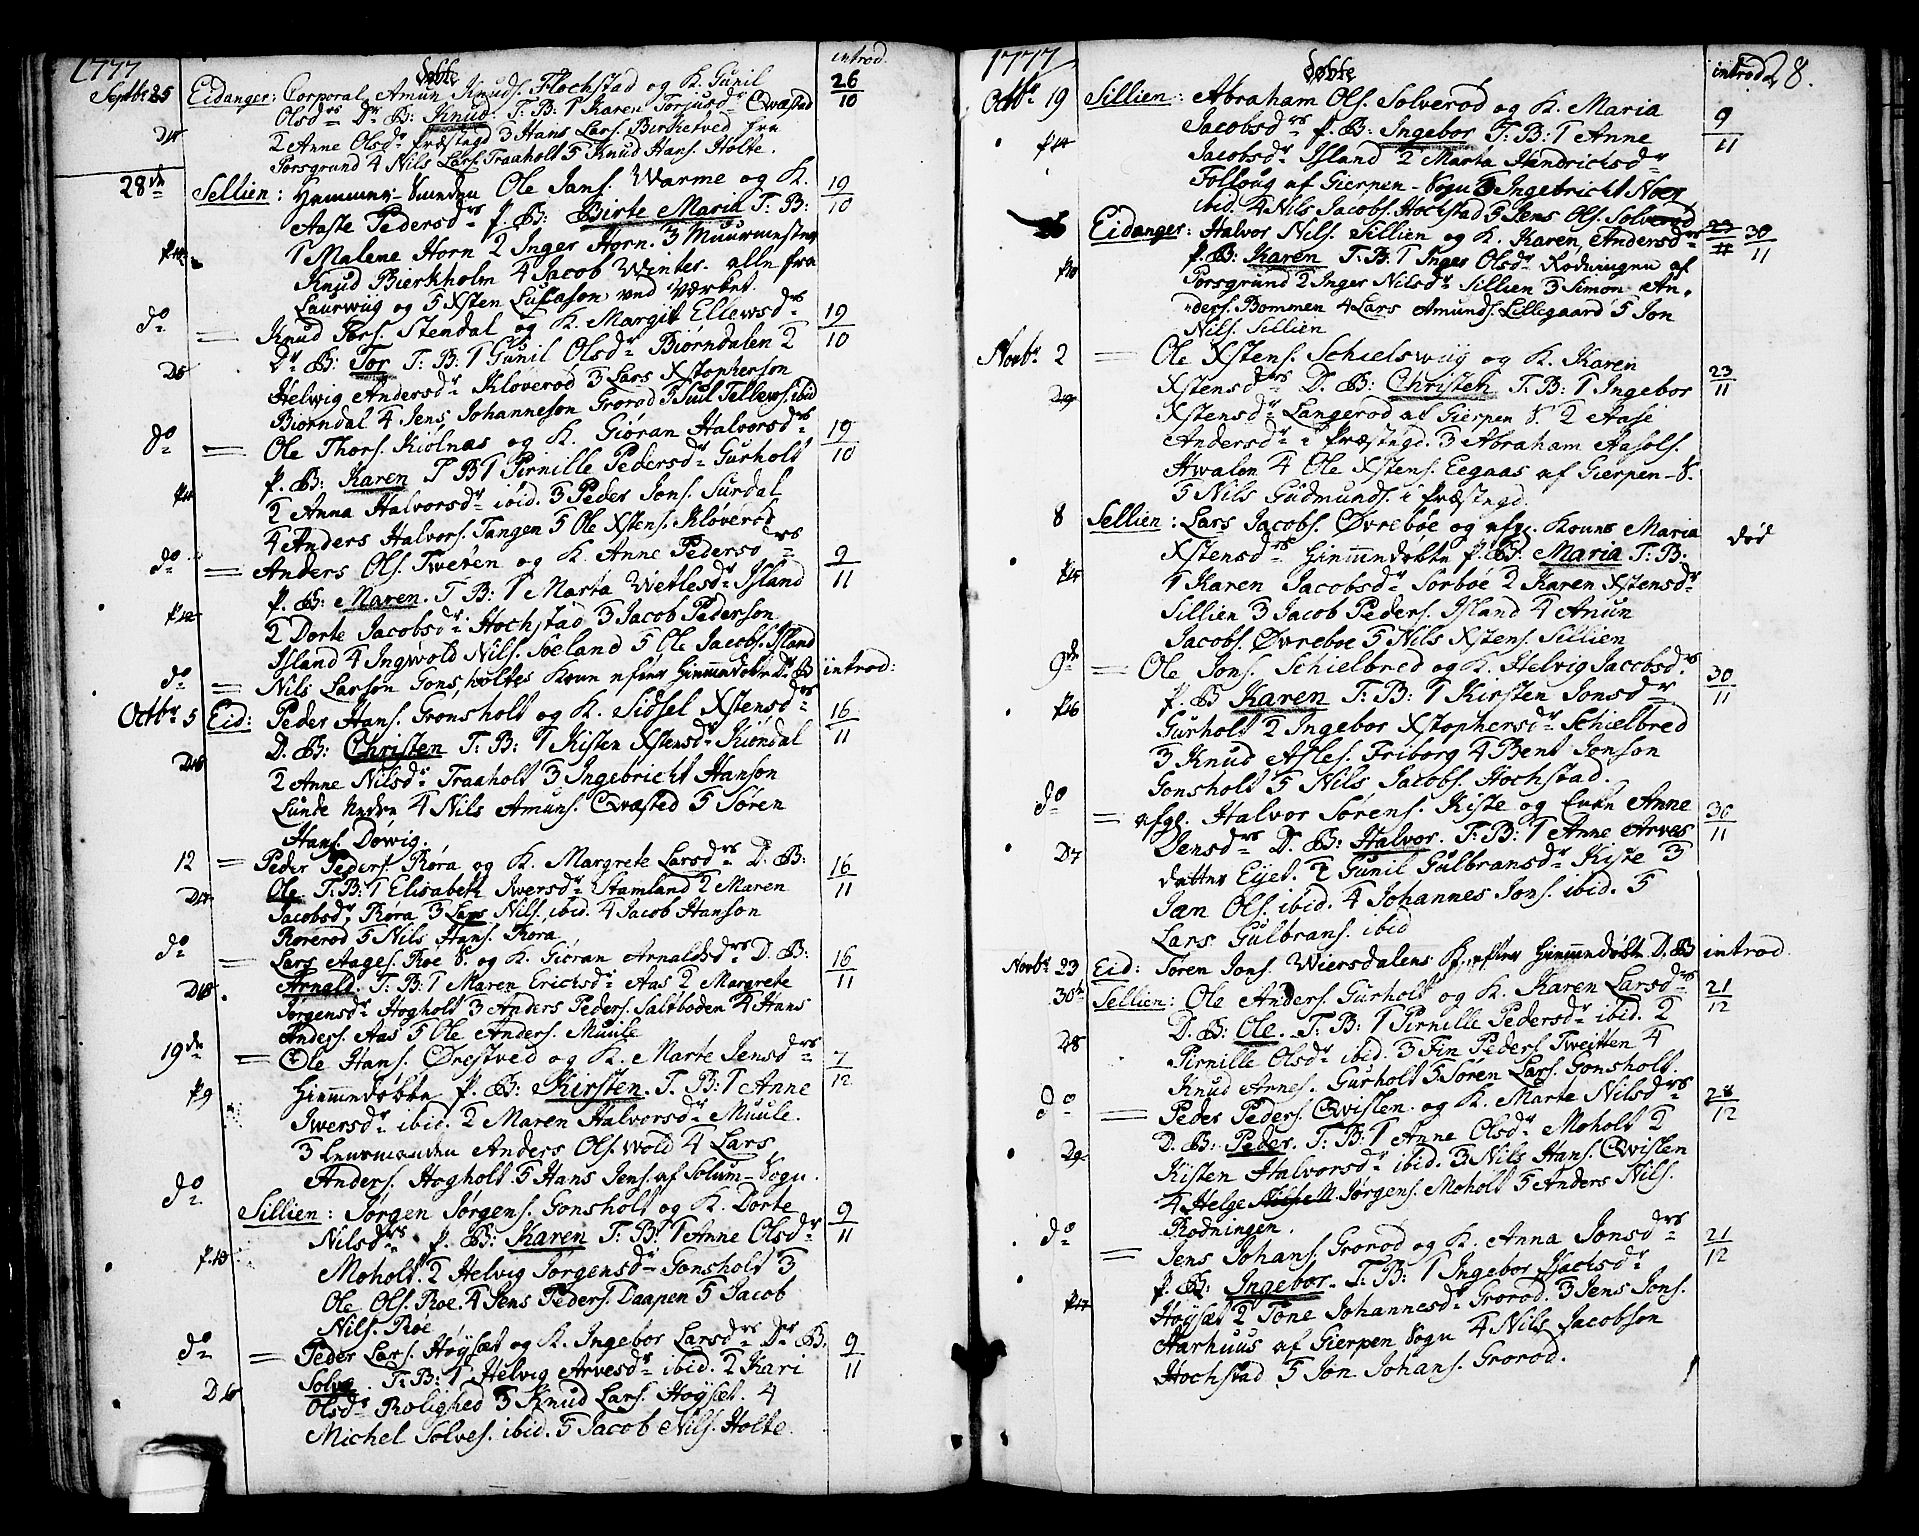 1777
Døbte
introd.
Septbr 25 Eidanger: Corporal Amun Knuds. Flochstad og K. Gunil 26/10
Olsdrs Dr B: Knud. T: B: 1 Karen Torjusdr Qvæstad
2 Anne Olsdr Præstegd 3 Hans Lars. Birketved fra
Porsgrund 4 Nils Lars. Traaholt 5 Knud Hans. Holte.
28de Sellien: Hammer-Smeden Ole Jans. Warme og K. 19/10
Aaste Pedersdrs P. B: Birte Maria T: B:
1 Malene Horn 2 Inger Horn. 3 Muurmester
Knud Bierkholm 4 Jacob Winter. alle fra
Laurwiig og 5 Xsten Lucason ved Værket.
do = Knud Tors. Stendal og K. Margit Ellewsdrs 19/10
Dr B: Tor T: B: 1 Gunil Olsdr Biørndalen 2
Helwig Andersdr Kløverød 3 Lars Xstopherson
Biørndal 4 Jens Johanneson Grorød 5 Juul Tellews. ibid
do = Ole Thors. Kiolnæs og K. Giøran Halvorsdrs 19/10
P. B: Karen T B 1 Pirnille Pedersdr Gurholt
2 Anna Halvorsdr ibid. 3 Peder Jons. Surdal
4 Anders Halvors. Tangen 5 Ole Xstens. Kløverød
do = Anders Ols. Tweten og K. Anne Pedersdrs 9/11
P. B: Maren. T: B: 1 Marta Wetlesdr Island
P12 2 Dorte Jacobsdr Hochstad 3 Jacob Pederson
Island 4 Ingwold Nils. Søeland 5 Ole Jacobs. Island
do = Nils Larson Gonsholtes Kone efter Hiemmedøbte D. B introd:
Octbr 5 Eid: Peder Hans. Gronsholt og K. Sidsel Xstensdrs 16/11
D. B: Christen T: B: 1 Kisten Xstensdr Kiøndal
2 Anne Nilsdr Traaholt 3 Ingebricht Hanson
Lunde Neden 4 Nils Amuns. Qvæsted 5 Søren
Hans. Døwig.
12 = Peder Peders. Røra og K. Margrete Larsdrs D. B: 16/11
Ole T: B: 1 Elisabeth Iwersdr Stamland 2 Maren
Jacobsdr Røra 3 Lars Nils. ibid. 4 Jacob Hanson
Rørerød 5 Nils Hans. Røra
do = Lars Aages. Røe S. og K. Giøran Arnaldsdrs D. B: 16/11
Arnald. T: B: 1 Maren Ericksdr Aas 2 Margrete
Jørgensdr Hogholt 3 Anders Peders. Saltboden 4 Hans
Anders. Aas 5 Ole Anders. Muule
19de = Ole Hans. Ørestved og K. Marte Jensdrs 7/12
P9 Hiemmedøbte P. B: Kirsten. T. B: 1 Anne
Iwersdr ibid. 2 Maren Halvorsdr Muule.
3 Lensmanden Anders Ols. Wold 4 Lars
Anders. Hogholt 5 Hans Jens. af Solum-Sogn.
do Sillien: Jørgen Jørgens. Gonsholt og K. Dorte 9/11
Nilsdrs P. B: Karen T: B: 1 Anne Olsdr
Moholt 2 Helvig Jørgensdr Gonsholt 3
Ole Ols. Røe. 4 Jens Peders. Daapen 5 Jacob
Nils. Røe
do = Peder Lars. Høysæt og K. Ingebor Larsdrs Dr B. 9/11
Solve. T: B: 1 Helvig Arvesdr ibid. 2 Kari
Olsdr Rolighed 3 Knud Lars. Høysæt. 4
Michel Solves. ibid. 5 Jacob Nils. Holte.
1777
Døbte
introd 28.
Octbr 19 Sillien: Abraham Ols. Solverød og K. Maria 9/11
Jacobsdrs P. B: Ingebor T: B: 1 Anne
Jacobsdr Island 2 Marta Hendricksdr
Folloug af Gierpen-Sogn 3 Ingebricht Noeg
ibid. 4 Nils Jacobs. Hochstad 5 Jens Ols. Solverød
26 Eidanger: Halvor Nils. Sillien og K. Karen Andersdrs 23/11 30/11
P. B: Karen T: B: 1 Inger Olsdr Rødningen af
Porsgrund 2 Inger Nilsdr Sillien 3 Simon An-
ders. Bommen 4 Lars Amunds. Lillegaard 5 Jon
Nils. Sillien
Novbr 2 = Ole Xstens. Schielswiig og K. Karen 23/11
Xstensdrs D. B: Christen T: B: 1 Ingebor
Xstensdr Langerød af Gierpen S. 2 Aase
Andersdr i Præstegd. 3 Abraham Aasols.
Hwalen 4 Ole Xstens. Eegaas af Gierpen-S.
5 Nils Gudmunds. i Præstegd
8 Sellien: Lars Jacobs. Øvrebøe og afg. Kones Maria død
Xstensdrs Hiemmedøbte P. B: Maria T: B:
P15 1 Karen Jacobsdr Sorboe 2 Karen Xstensdr
Sillien 3 Jacob Peders. Island 4 Amun
Jacobs. Øvreboe 5 Nils Xstens. Sillien
9de = Ole Jons. Schielbred og K. Helvig Jacobsdrs 30/11
P16 P. B Karen T: B: 1 Kirsten Jonsdr
Gurholt 2 Ingebor Xstophersdr Schielbred
3 Knud Asles. Friborg 4 Bent Jonson
Gonsholt 5 Nils Jacobs. Hochstad.
do = afgl. Halvor Sørens. Kiste og Enke Anne 30/11
D7 Jensdrs D. B: Halvor. T: B: 1 Anne Arves
datter Eyet. 2 Gunil Gulbransdr Kiste 3
Jan Ols. ibid. 4 Johannes Jons. ibid. 5
Lars Gulbrans. ibid
Novbr 23 Eid: Søren Jons. Wiersdalens K. efter Hiemmedøbte D. B introd.
30te Sellien: Ole Anders. Gurholt og K. Karen Larsdrs 21/12
D8 D. B: Ole. T: B: 1 Pirnille Pedersdr ibid. 2
Pirnille Olsdr ibid. 3 Fin Peders Tweitten 4
Knud Arnes. Gurholt 5 Søren Lars. Gonsholt.
do = Peder Peders. Qvisten. og K. Marte Nilsdrs 28/12
D9 D. B: Peder. T: B: 1 Anne Olsdr Moholt 2
Kisten Halvorsdr ibid. 3 Nils Hans. Qvisten
4 Helge Jørgens. Moholt 5 Anders Nils.
Rodningen.
do = Jens Johans. Grorød og K. Anna Jonsdrs 21/12
P17 P. B: Ingebor. T: B: 1 Ingebor Isacksdr
Høysæt 2 Tone Johannesdr Grorød. 3 Jens Jons.
Aarhuus af Gierpen Sogn 4 Nils Jacobson
Hochstad 5 Jon Johans. Grorød.